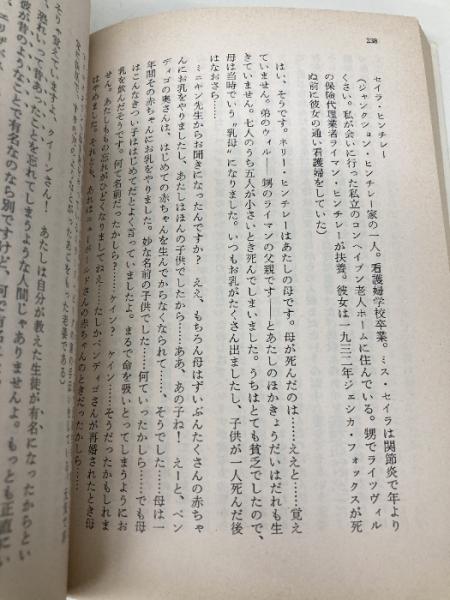 238
セイラ・ヒンチレー
(ジャンクション・ヒンチレー家の一人。看護婦学校卒業。ミス・セイラは関節炎で年より
くさい。私が会いに行った私立のコンヘイブン老人ホームに住んでいる。甥でライツヴィル
の保険代理業者ライマン・ヒンチレーが扶養。彼女は一九三二年ジェシカ・フォックスが死
ぬ前に彼女の通い看護婦をしていた)
はい、そうです。ホリー・ヒンチレーはあたしの母です。母が死んだのは……ええと……覚え
ていません。弟のウィル——甥のライマンの父親です——とあたしのほかきょうだいはだれも生
きていません。七人のうち五人が小さいとき死んでしまいました。うちはとても貧乏でしたので、
母は当時でいう〝乳母〟になりました。いつもお乳がたくさん出ましたし、子供が一人死んだ後
はなおさら。
ミニキン先生からお聞きになったんですか? ええ、もちろん母はずいぶんたくさんの赤ちゃ
んにお乳をやりました、あたしはほんの子供でしたから……ああ、あの子ね! えーと、ベン
ディゴの奥さんは、はじめての赤ちゃんを生んでからなくなられて……、そうでした……母は一
年間その赤ちゃんにお乳をやりました。妙な名前の子供でした……何ていったかしら……でも母
はこんなきつい子ははじめてだとよく言っていましたよ。まるで命を吸いとってしまうようにお
乳を飲んだそうです。何て名前だったかしら?……ケイン? ケイン……そうだったかもしれま
せん。あたしもの忘れがひどくなりましてねえ……たしかベンディゴさんが再婚されたとき母
はやめました。それとも、あれはニューボールドさんの赤ちゃんのときだったかしら……
そりゃ覚えていますよ、クイーンさん! あたしは自分が教えた生徒が有名になったからとい